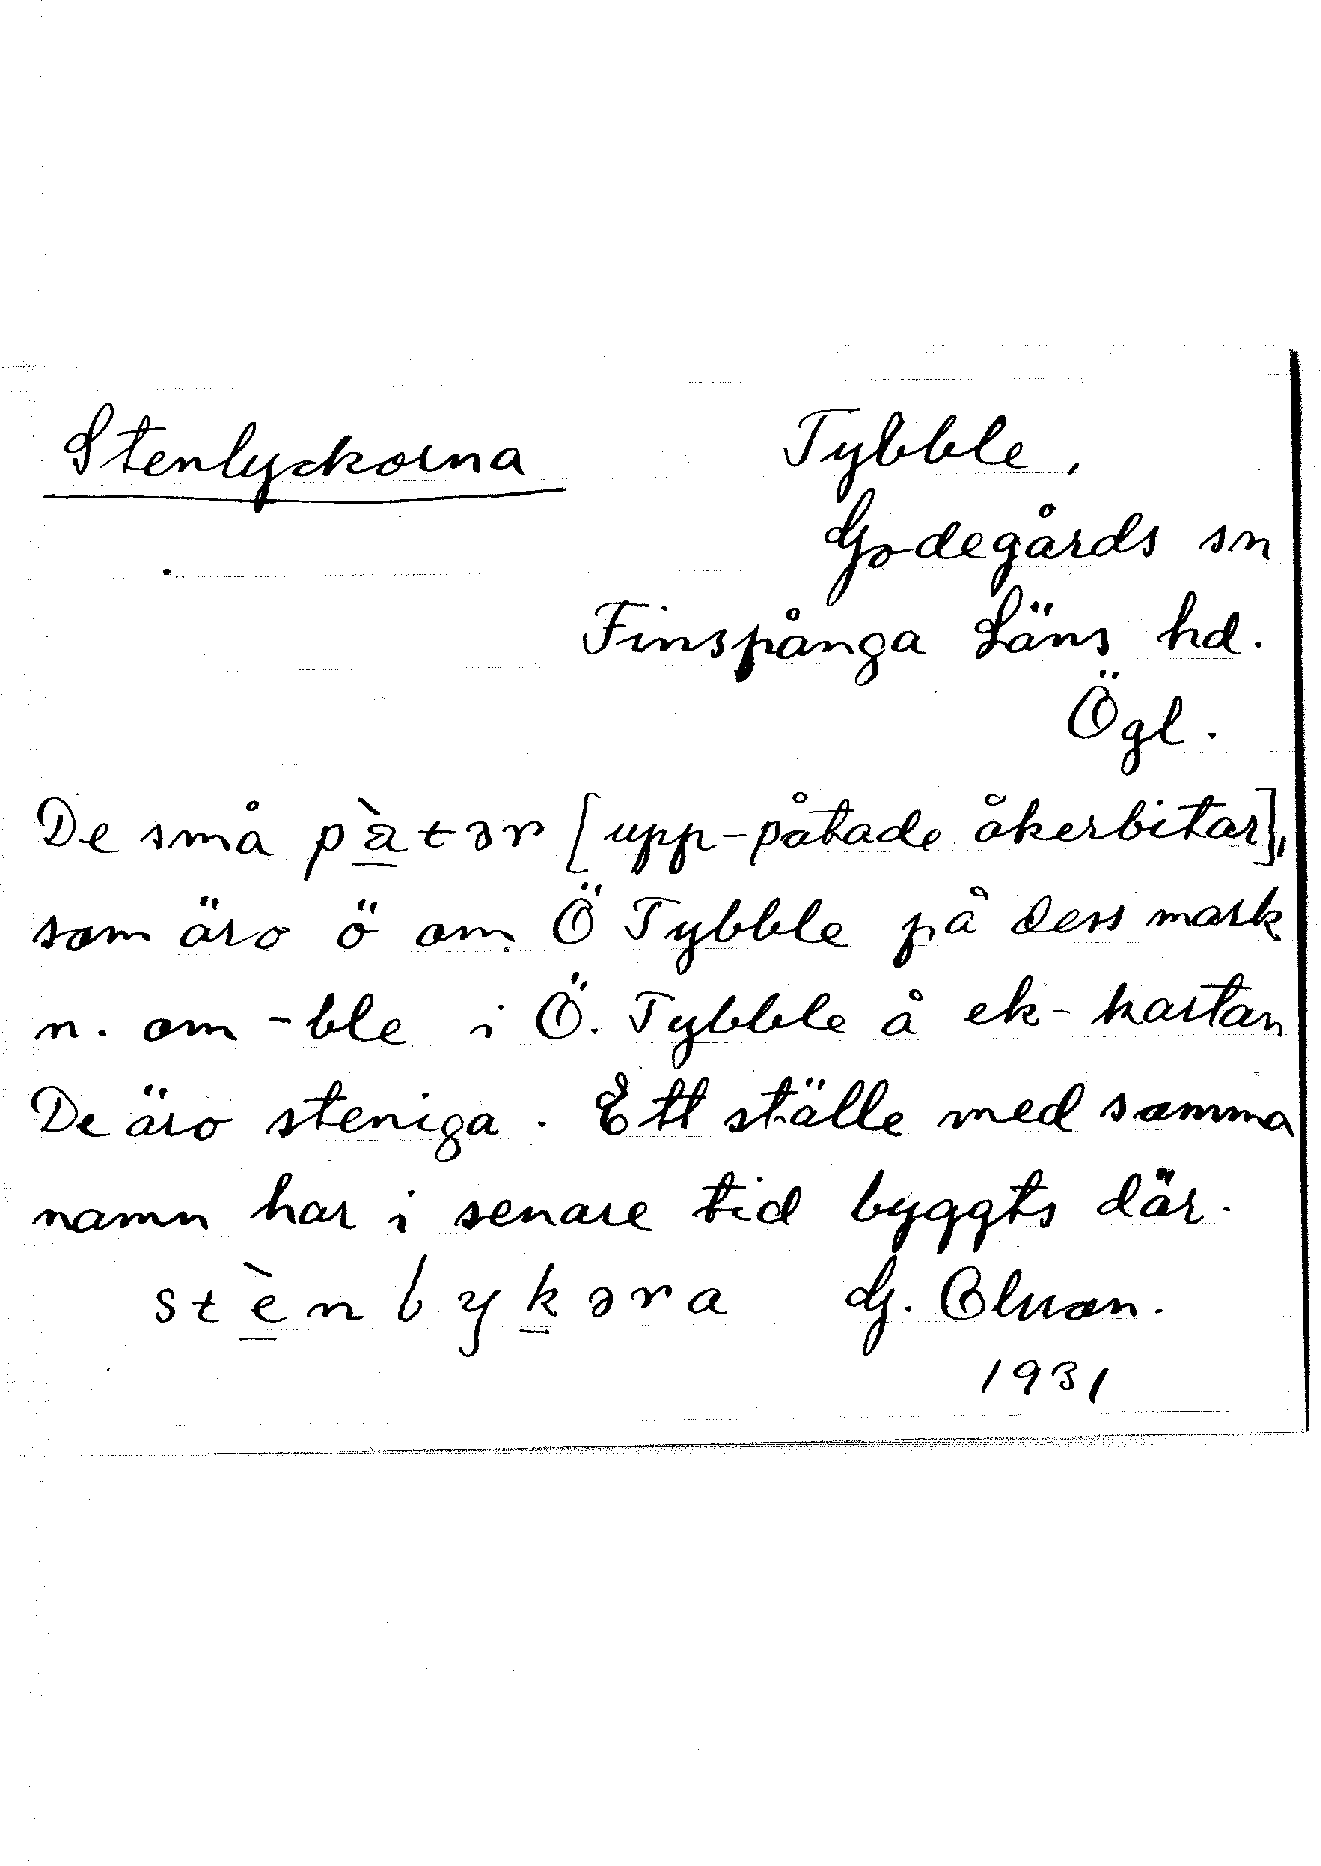 Stenlyckorna
Tybble,
Godegårds sn
Finspånga Läns hd.
Ögl.
De små pàtər [upp-påtade åkerbitar],
som äro ö om Ö Tybble på dess mark
n. om -ble i Ö. Tybble å ek-kartan
De äro steniga. Ett ställe med samma
namn har i senare tid byggts där.
stènlykəra G.
1931